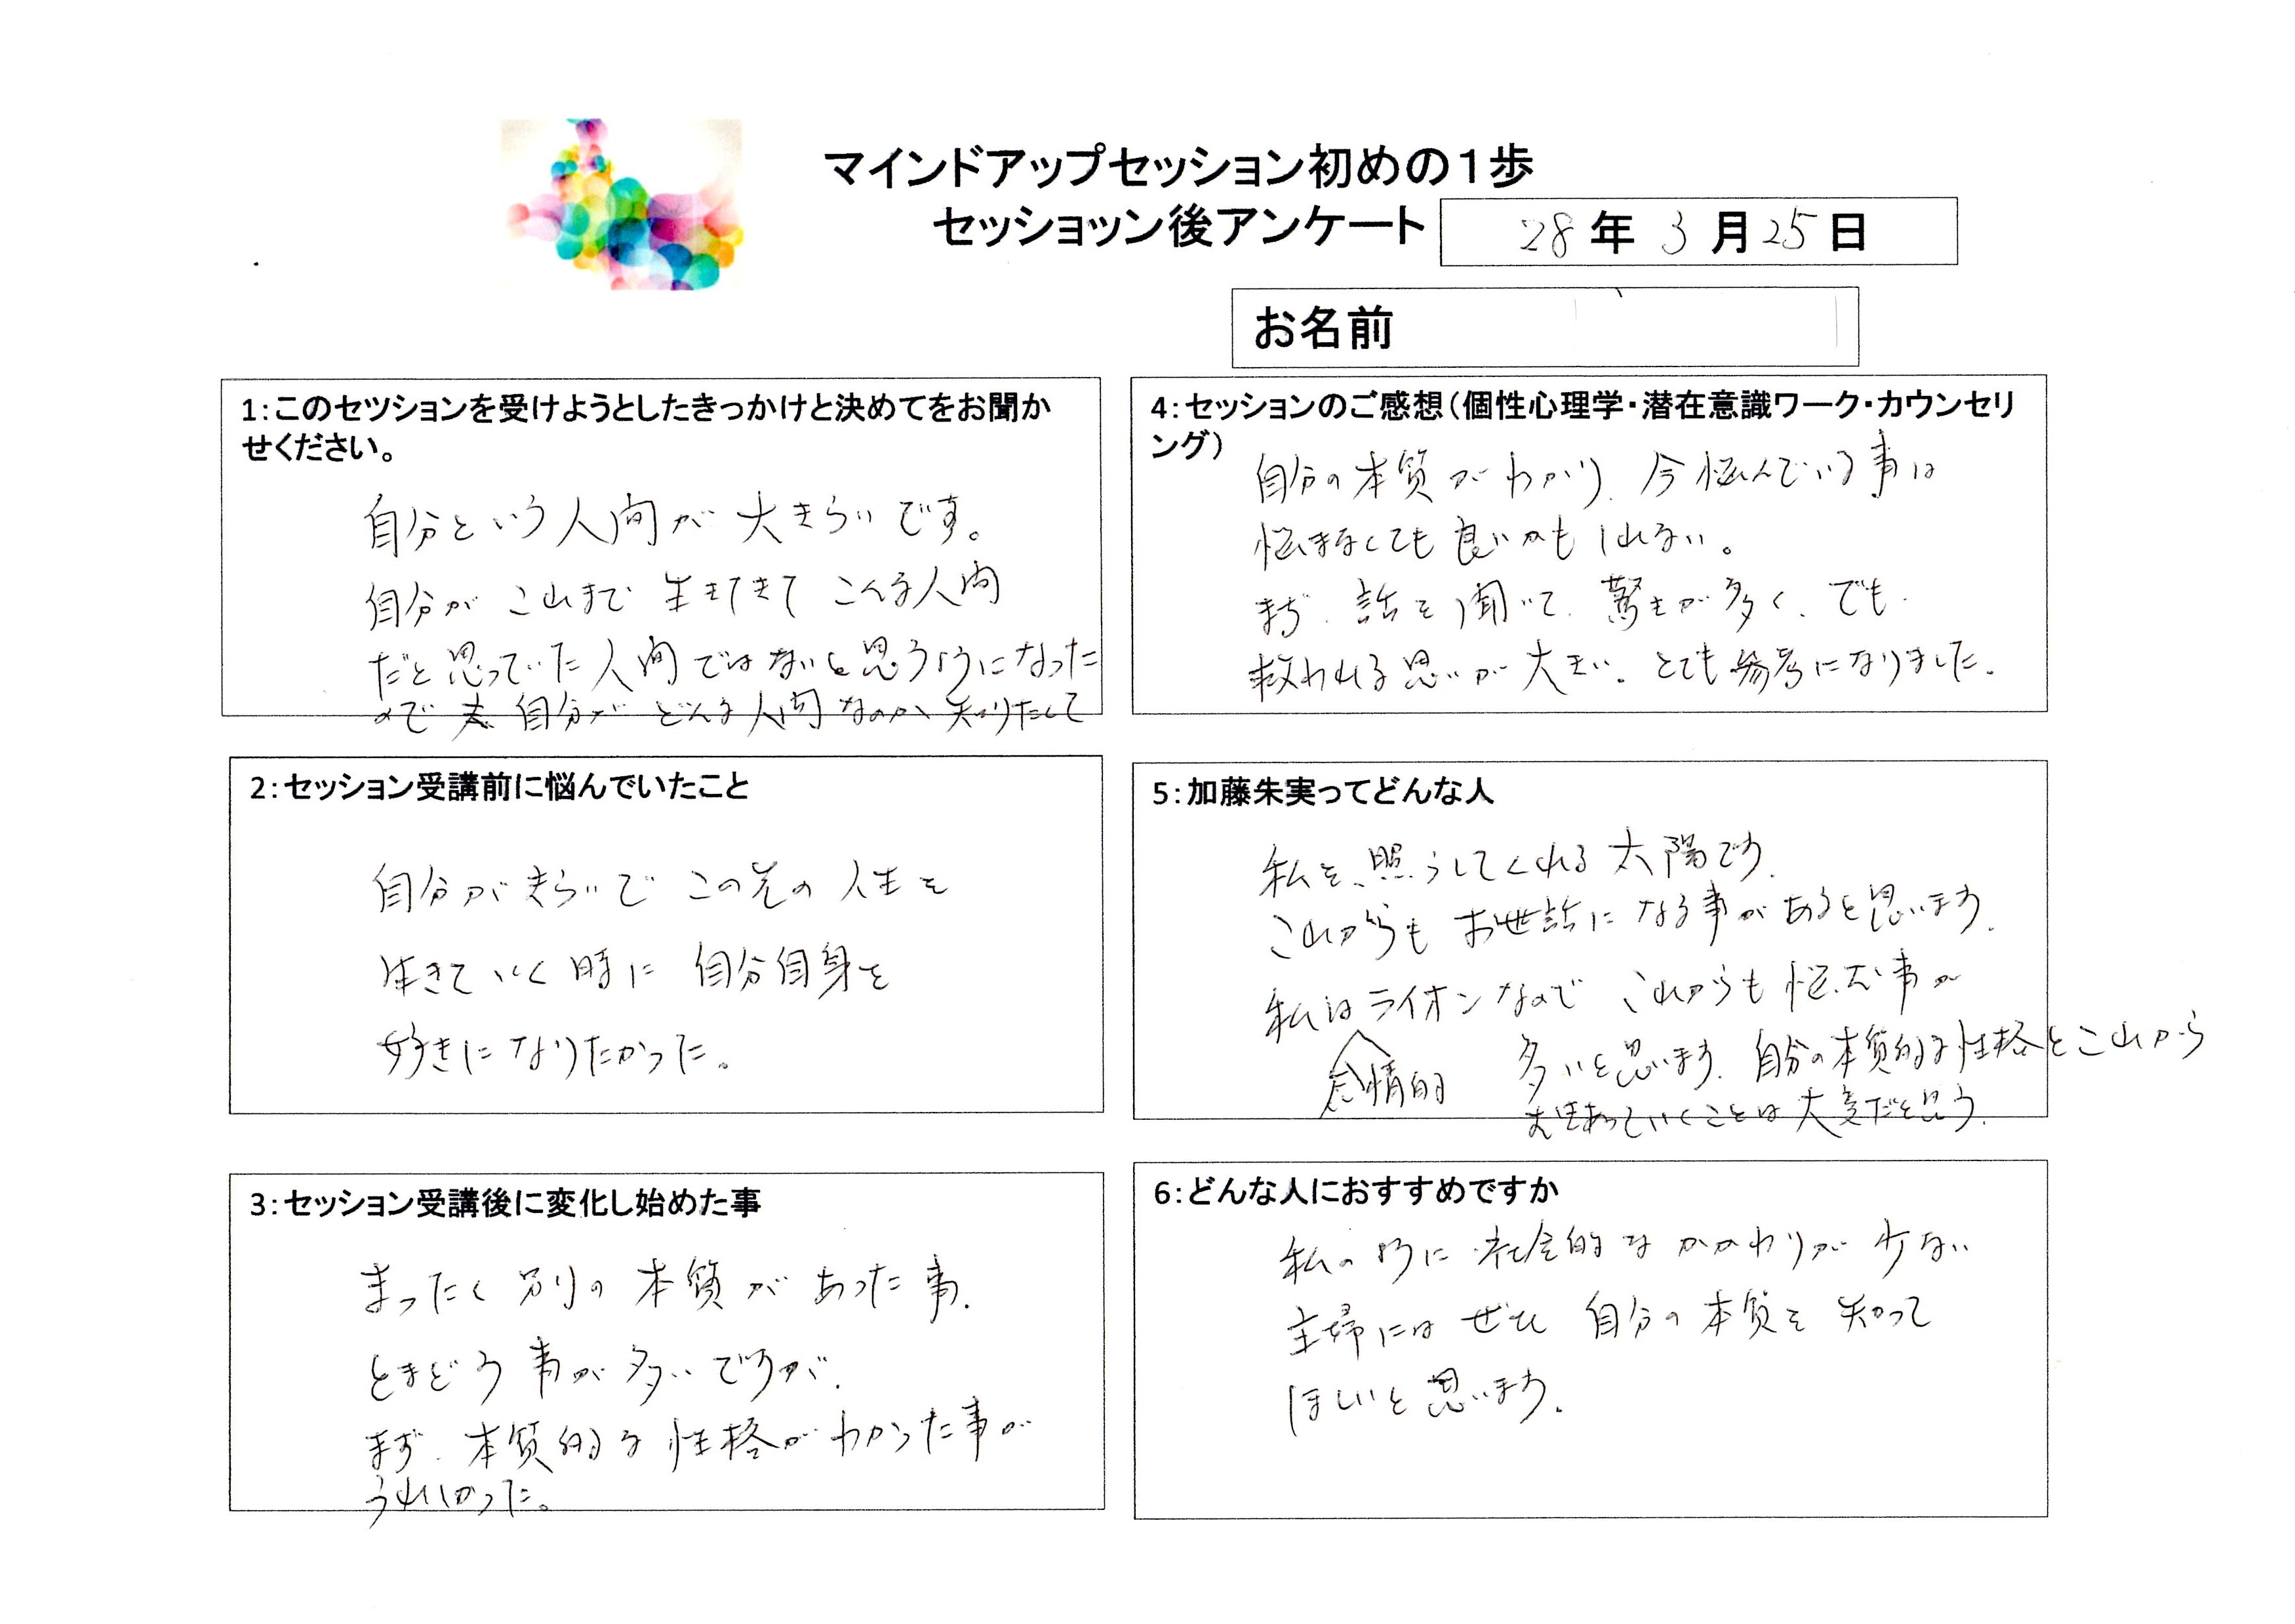 マインドアップセッション初めの1歩
セッショッン後アンケート
28年3月25日
お名前
1:このセツションを受けようとしたきっかけと決めてをお聞か
せください。
自分という人間が大きらいです。
自分がこれまで生きてきてこんな人間
だと思っていた人間ではないと思うようになった
ので 自分がどんな人間なのか知りたくて
2:セッション受講前に悩んでいたこと
自分がきらいでこの先の人生を
生きていく時に自分自身を
好きになりたかった。
3:セッション受講後に変化し始めた事
まったく別の本質があった事.
とまどう事が多いですが.
まず.本質的な性格がわかった事が
うれしかった。
4:セッションのご感想(個性心理学・潜在意識ワーク・カウンセリ
ング)
自分の本質がわかり、今悩んでいる事は
悩まなくても良いかもしれない。
まず.話を聞いて.驚きが多く、でも.
救われる思いが大きい。とても参考になりました。
5:加藤朱実ってどんな人
私を、照らしてくれる太陽です.
これからもお世話になる事があると思います.
私はライオンなのでこれからも悩む事が
感情的
多いと思います.自分の本質的な性格とこれから
っていくことは大変だと思う.
6:どんな人におすすめですか
私の様に社会的なかかわりが少ない
主婦にはぜひ自分の本質を知って
ほしいと思います.